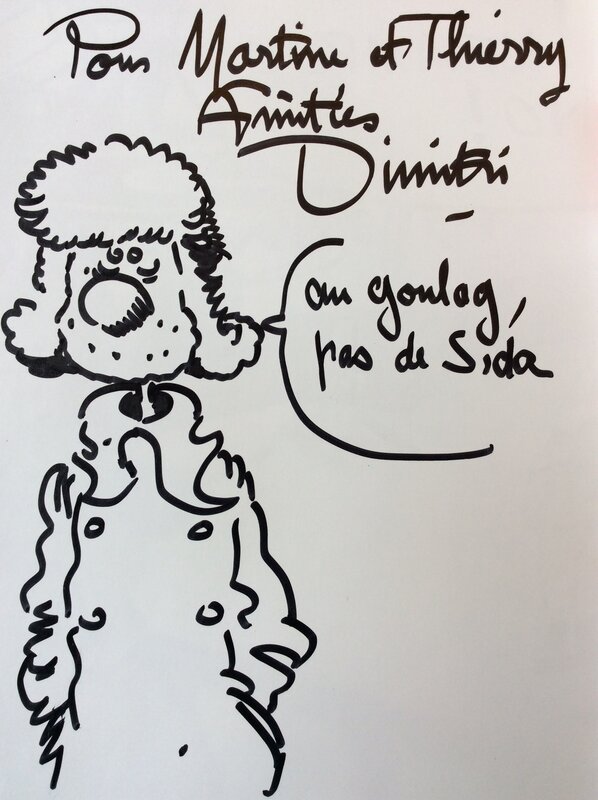 Pour Martine et Thierry
Amitiés
Dimitri
au goulag,
pas de Sida